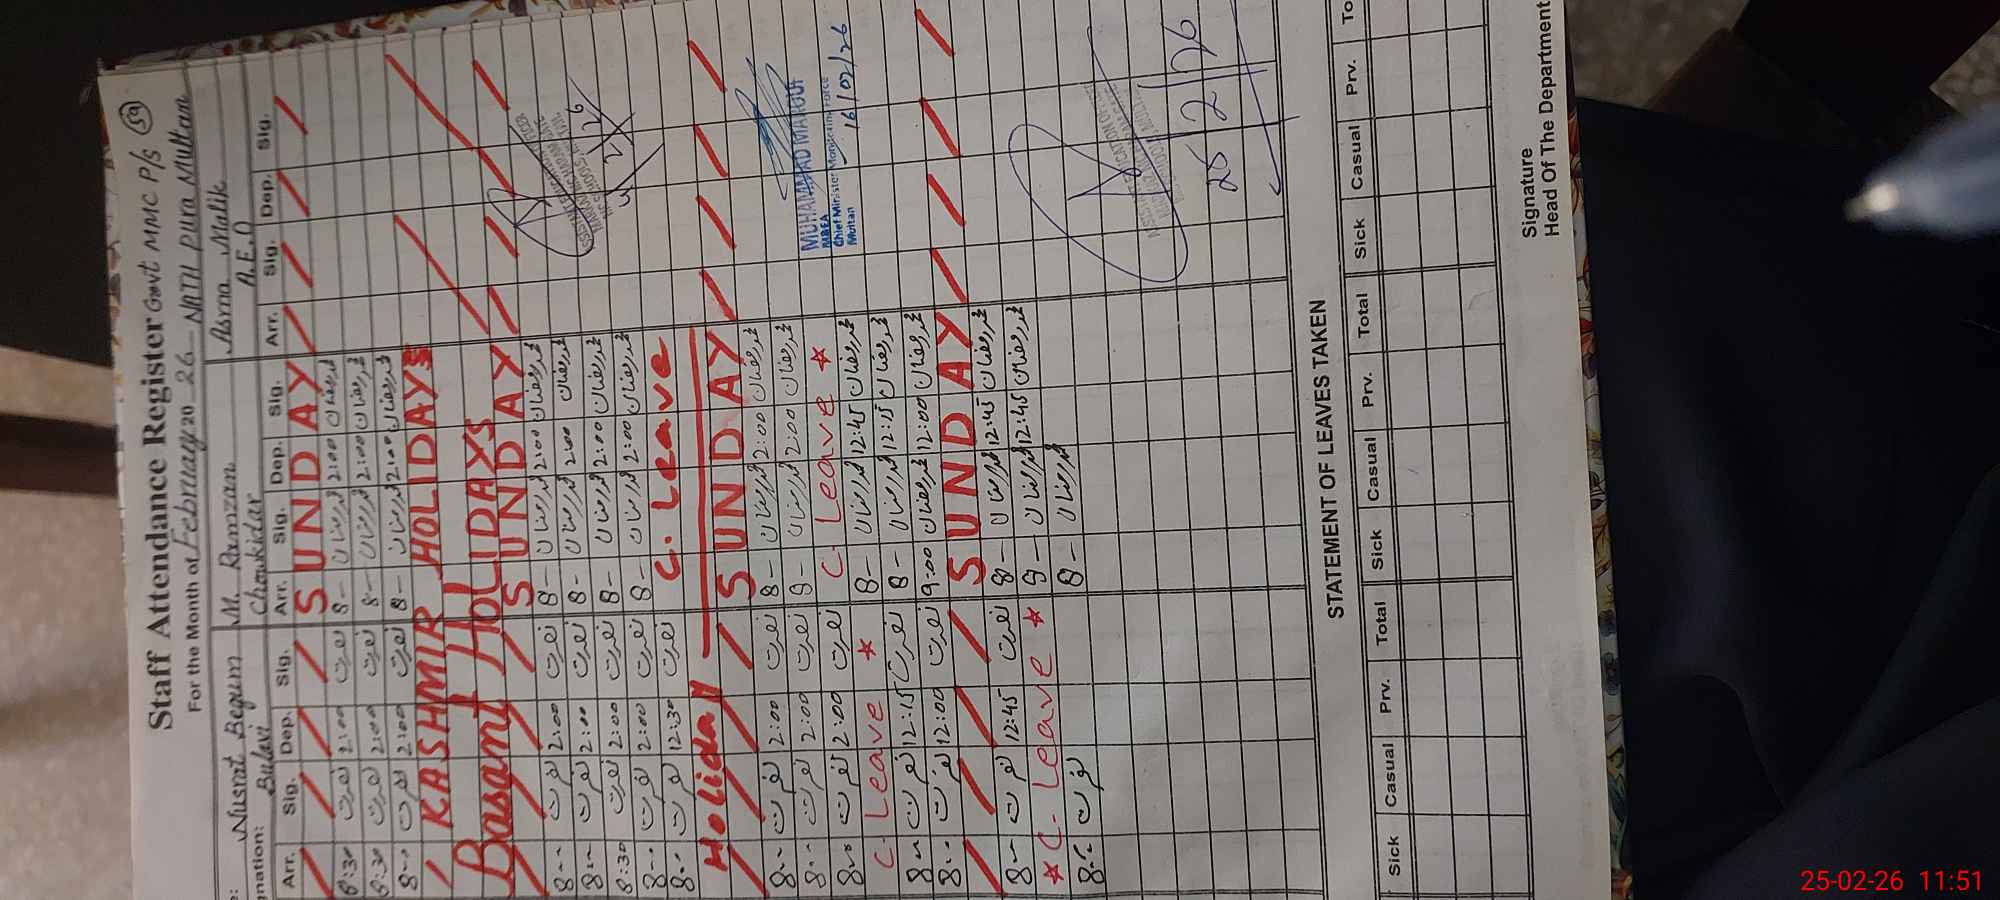 Staff Attendance Register Govt MMC P/S 59
For the Month of February 20 26 NATH PURA Multan
Nusrat Begum M. Ramzan Asma Malik
nation: Bulavi Chowkidar A.E.O
Arr. Sig. Dep. Sig. Arr. Sig. Dep. Sig. Arr. Sig. Dep. Sig.
SUNDAY
8:30 نصرت 2:00 نصرت 8- محمد رمضان 2:00 محمد رمضان
8:30 نصرت 2:00 نصرت 8- محمد رمضان 2:00 محمد رمضان
8-- نصرت 2:00 نصرت 8- محمد رمضان 2:00 محمد رمضان
KASHMIR HOLIDAYS
Basant HOLIDAYS
SUNDAY
8-- نصرت 2:00 نصرت 8- محمد رمضان 2:00 محمد رمضان
8-- نصرت 2:00 نصرت 8- محمد رمضان 2:00 محمد رمضان
8:30 نصرت 2:00 نصرت 8- محمد رمضان 2:00 محمد رمضان
8-- نصرت 2:00 نصرت 8- محمد رمضان 2:00 محمد رمضان
8-- نصرت 12:30 نصرت C. Leave
Holiday
SUNDAY
8-- نصرت 2:00 نصرت 8- محمد رمضان 2:00 محمد رمضان
8-- نصرت 2:00 نصرت 9- محمد رمضان 2:00 محمد رمضان
8-- نصرت 2:00 نصرت C- Leave
C- Leave 8- محمد رمضان 12:45 محمد رمضان
8-- نصرت 12:15 نصرت 8- محمد رمضان 12:15 محمد رمضان
8-- نصرت 12:00 نصرت 9:00 محمد رمضان 12:00 محمد رمضان
SUNDAY
8-- نصرت 12:45 نصرت 8- محمد رمضان 12:45 محمد رمضان
C- Leave 9- محمد رمضان 12:45 محمد رمضان
8-- نصرت 8- محمد رمضان
MUHAMMAD MAROOF
M&EA
Chief Minister Monitoring Force
Multan
16/02/26
25/2/26
STATEMENT OF LEAVES TAKEN
Sick Casual Prv. Total Sick Casual Prv. Total Sick Casual Prv. To
Signature
Head Of The Department
25-02-26 11:51